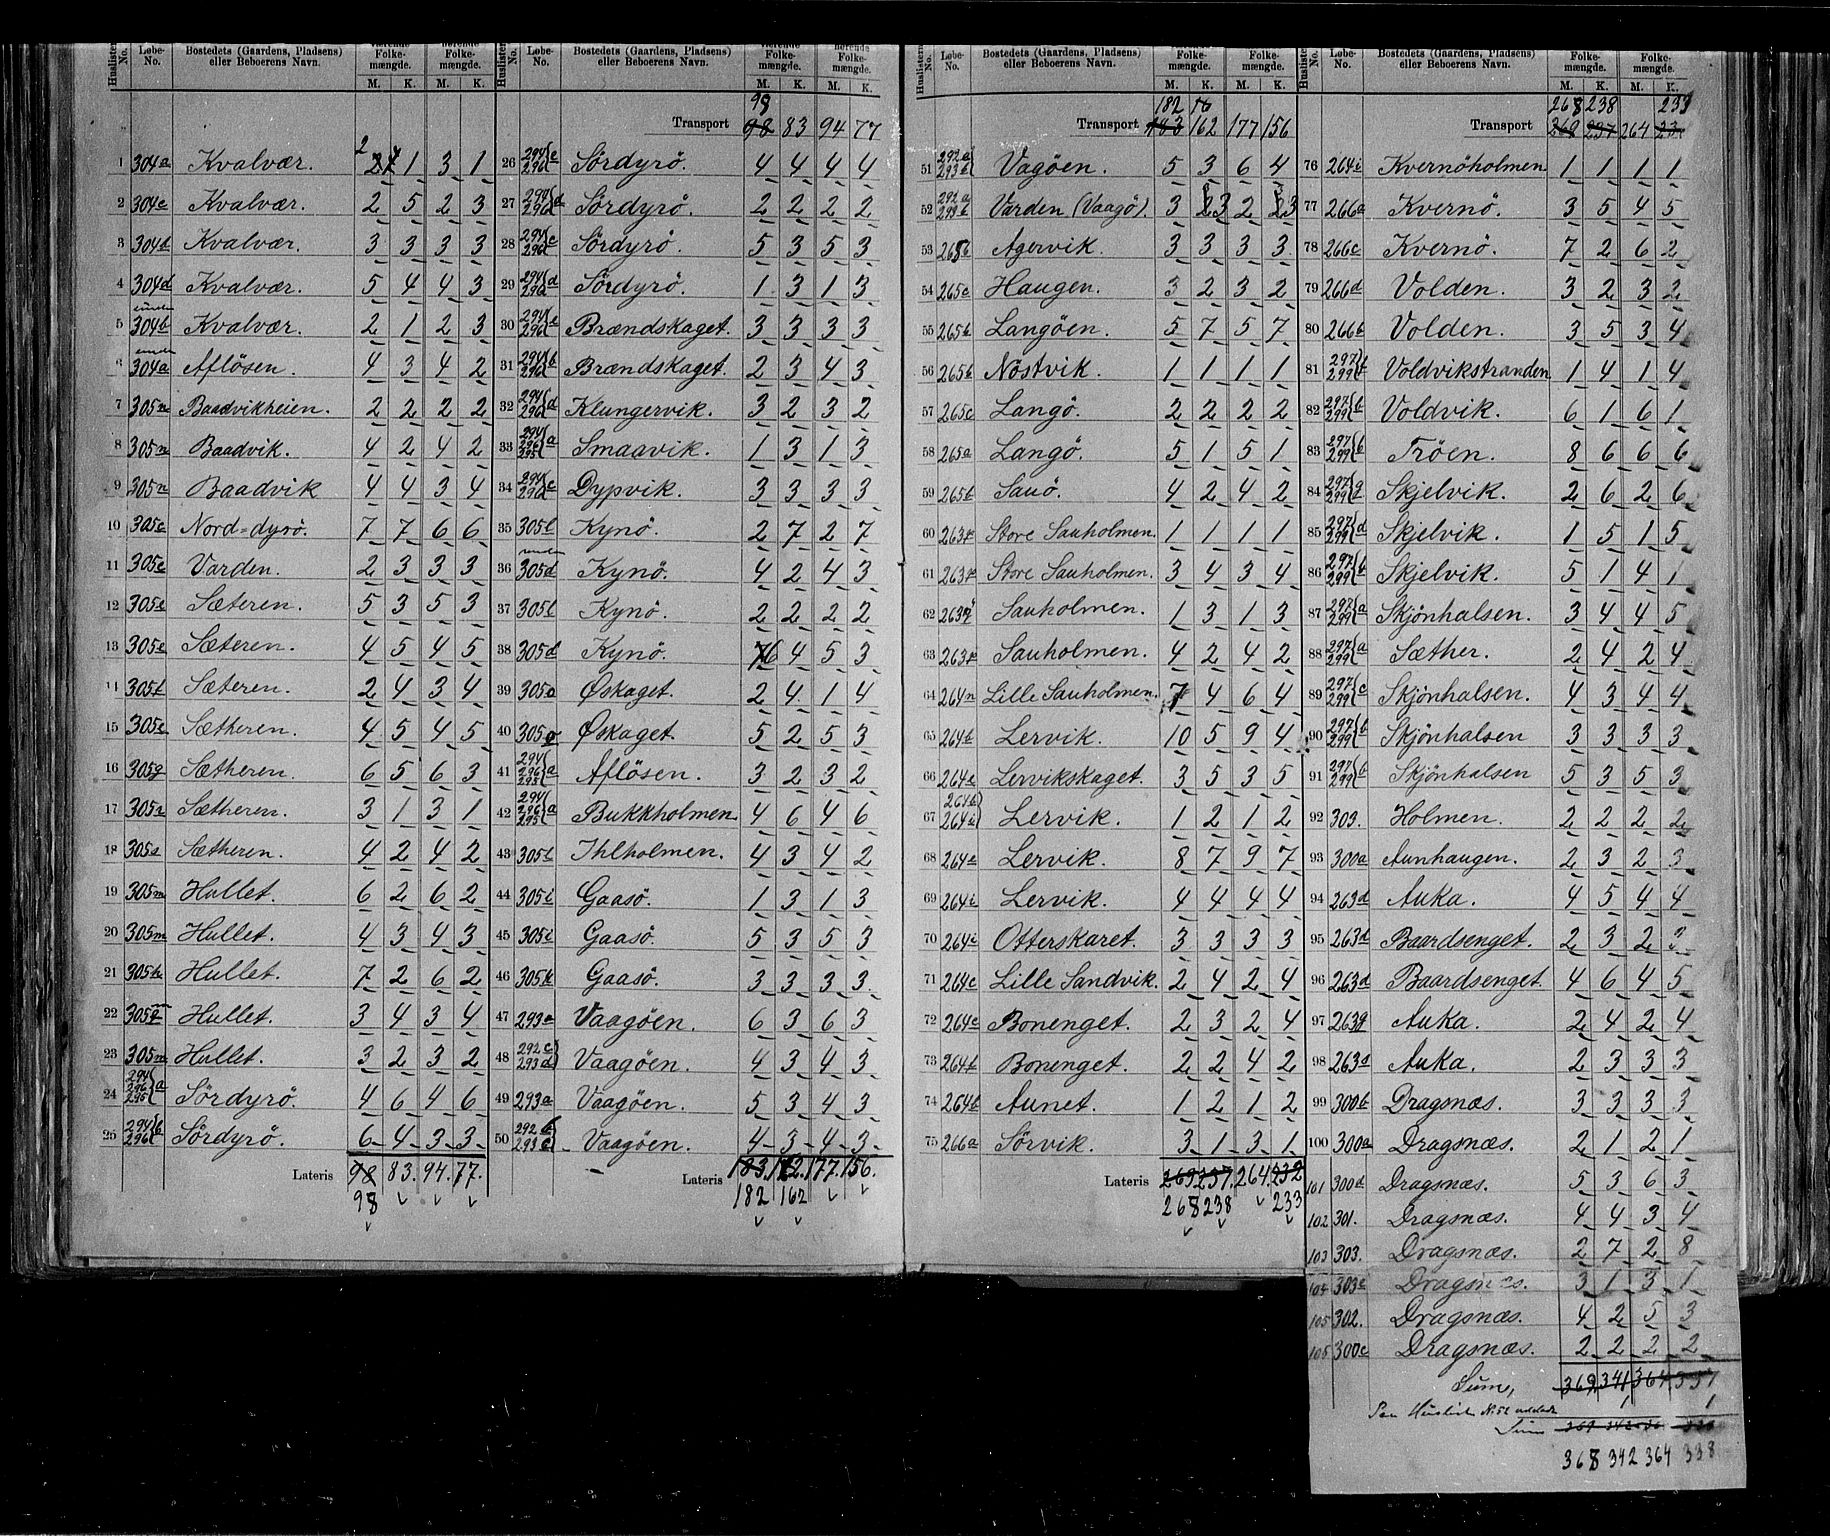 Huslistens No. Løbe-No. Bostedets (Gaardens, Pladsens) eller Beboerens Navn. Folke-mængde. M. K. Folke-mængde. M. K.
1 304a Kvalvær. 2 1 3 1
2 304c Kvalvær. 2 5 2 3
3 304d Kvalvær. 3 3 3 3
4 304d Kvalvær. 5 4 4 3
5 304b Kvalvær. 2 1 2 3
6 304a Afløsen. 4 3 4 2
7 305n Baadvikheien. 2 2 2 2
8 305n Baadvik. 4 2 4 2
9 305n Baadvik 4 4 3 4
10 305c Nord=dyrö. 7 7 6 6
11 305c Varden. 2 3 3 3
12 305e Sæteren. 5 3 5 3
13 305e Sæteren. 4 5 4 5
14 305f Sæteren. 2 4 3 4
15 305e Sætheren. 4 5 4 5
16 305g Sætheren. 6 5 6 3
17 305 Sætheren. 3 1 3 1
18 305 Sætheren. 4 2 4 2
19 305m Hullet. 6 2 6 2
20 305m Hullet. 4 3 4 3
21 305 Hullet. 7 2 6 2
22 305 Hullet. 3 4 3 4
23 305n Hullet. 3 2 3 2
24 294 296 295 a Sördyrö. 4 6 4 6
25 294 296 b Sördyrö. 6 4 3 3
Lateris 98 83. 94. 77.
98
Huslistens No. Løbe-No. Bostedets (Gaardens, Pladsens) eller Beboerens Navn. Folke-mængde. M. K. Folke-mængde. M. K.
98
Transport 98 83 94 77
26 294 296 c Sördyrö. 4 4 4 4
27 294 296 d Sördyrö. 2 2 2 2
28 294 296 c Sördyrö. 5 3 5 3
29 294 296 d Sördyrö. 1 3 1 3
30 294 296 c Brændskaget. 3 3 3 3
31 294 296 b Brændskaget. 2 3 4 3
32 294 296 d Klungervik. 3 2 3 2
33 294 296 295 a Smaavik. 1 3 1 3
34 294 296 c Dypvik. 3 3 3 3
35 305l Kynö. 2 7 2 7
36 305d Kynö. 4 2 4 3
37 305l Kynö. 2 2 2 2
38 305d Kynö. 6 4 5 3
39 305o Øskaget. 2 4 1 4
40 305o Øskaget 5 2 5 3
41 294 296 295 a Aflösen. 3 2 3 2
42 294 296 295 a Bukkholmen 4 6 4 6
43 305 Ihlholmen. 4 3 4 2
44 305i Gaasö. 1 3 1 3
45 305i Gaasö. 5 3 5 3
46 305k Gaasö. 3 3 3 3
47 293 Vaagöen. 6 3 6 3
48 292c 293d Vaagöen. 4 3 4 3
49 293a Vaagöen. 5 3 4 3
50 292 293 Vaagöen. 4 3 4 3
Lateris 183. 162. 177. 156.
182 162
Huslistens No. Løbe-No. Bostedets (Gaardens, Pladsens) eller Beboerens Navn. Folke-mængde. M. K. Folke-mængde. M. K.
182
Transport 183 162 177 156
51 292a 293b Vagöen. 5 3 6 4
52 292a 293b Varden (Vaagö). 3 3 2 3
53 265b Agervik. 3 3 3 3
54 265c Haugen. 3 2 3 2
55 265b Langöen. 5 7 5 7
56 265b Nöstvik. 1 1 1 1
57 265c Langö. 2 2 2 2
58 265a Langö. 5 1 5 1
59 265b Sauö. 4 2 4 2
60 263 Store Sauholmen. 1 1 1 1
61 263 Store Sauholmen. 3 4 3 4
62 263 Sauholmen. 1 3 1 3
63 263 Sauholmen. 4 2 4 2
64 264n Lille Sauholmen. 7 4 6 4
65 264b Lervik. 10 5 9 4
66 264 Lervikskaget. 3 5 3 5
67 264b 264a Lervik. 1 2 1 2
68 264a Lervik. 8 7 9 7
69 264i Lervik. 4 4 4 4
70 264c Otterskaret. 3 3 3 3
71 264c Lille Sandvik. 2 4 2 4
72 264c Bonenget. 2 3 2 4
73 264b Bonenget. 2 2 4 2
74 264b Aunet. 1 2 1 2
75 266a Sörvik. 3 1 3 1
Lateris 269 237. 264. 232
268 238 233
Huslistens No. Løbe-No. Bostedets (Gaardens, Pladsens) eller Beboerens Navn. Folke-mængde. M. K. Folke-mængde. M. K.
268 238 233
Transport 269 237 264 232
76 264i Kvernöholmen 1 1 1 1
77 266a Kvernö. 3 5 4 5
78 266c Kvernö. 7 2 6 2
79 266d Volden. 3 2 3 2
80 266b Volden. 3 5 3 4
81 297 299 f Voldvikstranden 1 4 1 4
82 297 299 b Voldvik. 6 1 6 1
83 297 299 b Tröen. 8 6 6 6
84 297 299 g Skjelvik. 2 6 2 6
85 297 299 d Skjelvik. 1 5 1 5
86 297 299 b Skjelvik. 5 1 4 1
87 297 299 a Skjönhalsen. 3 4 4 5
88 297 299 a Sæther. 2 4 2 4
89 297 299 c Skjönhalsen. 4 3 4 4
90 297 299 b Skjönhalsen 3 3 3 3
91 297 299 b Skjönhalsen 5 3 5 3
92 303. Holmen. 2 2 2 2
93 300a Aunhaugen. 2 3 2 3
94 263d Auka. 4 5 4 4
95 263b Baardsenget. 2 3 2 3
96 263d Baardsenget. 4 6 4 5
97 263g Auka. 2 4 2 4
98 263d Auka. 2 3 3 3
99 300b Dragsnæs. 3 3 3 3
100 300a Dragsnæs. 2 1 2 1
101 300d Dragsnæs. 5 3 6 3
102 301. Dragsnæs. 4 4 3 4
103 303. Dragsnæs. 2 7 2 8
104 303c Dragsnæs. 3 1 3 1
105 302. Dragsnæs. 4 2 5 3
105 300c Dragsnæs. 2 2 2 2
Sum, 369 341 364 337
Paa Huslist No. 52 1 1
Sum 369 342
368 342 364 338